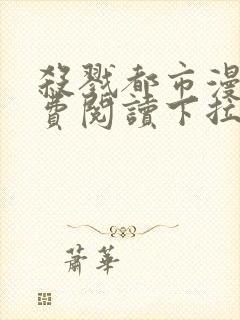 殺戮都市漫
費閱讀下拉
蕭華